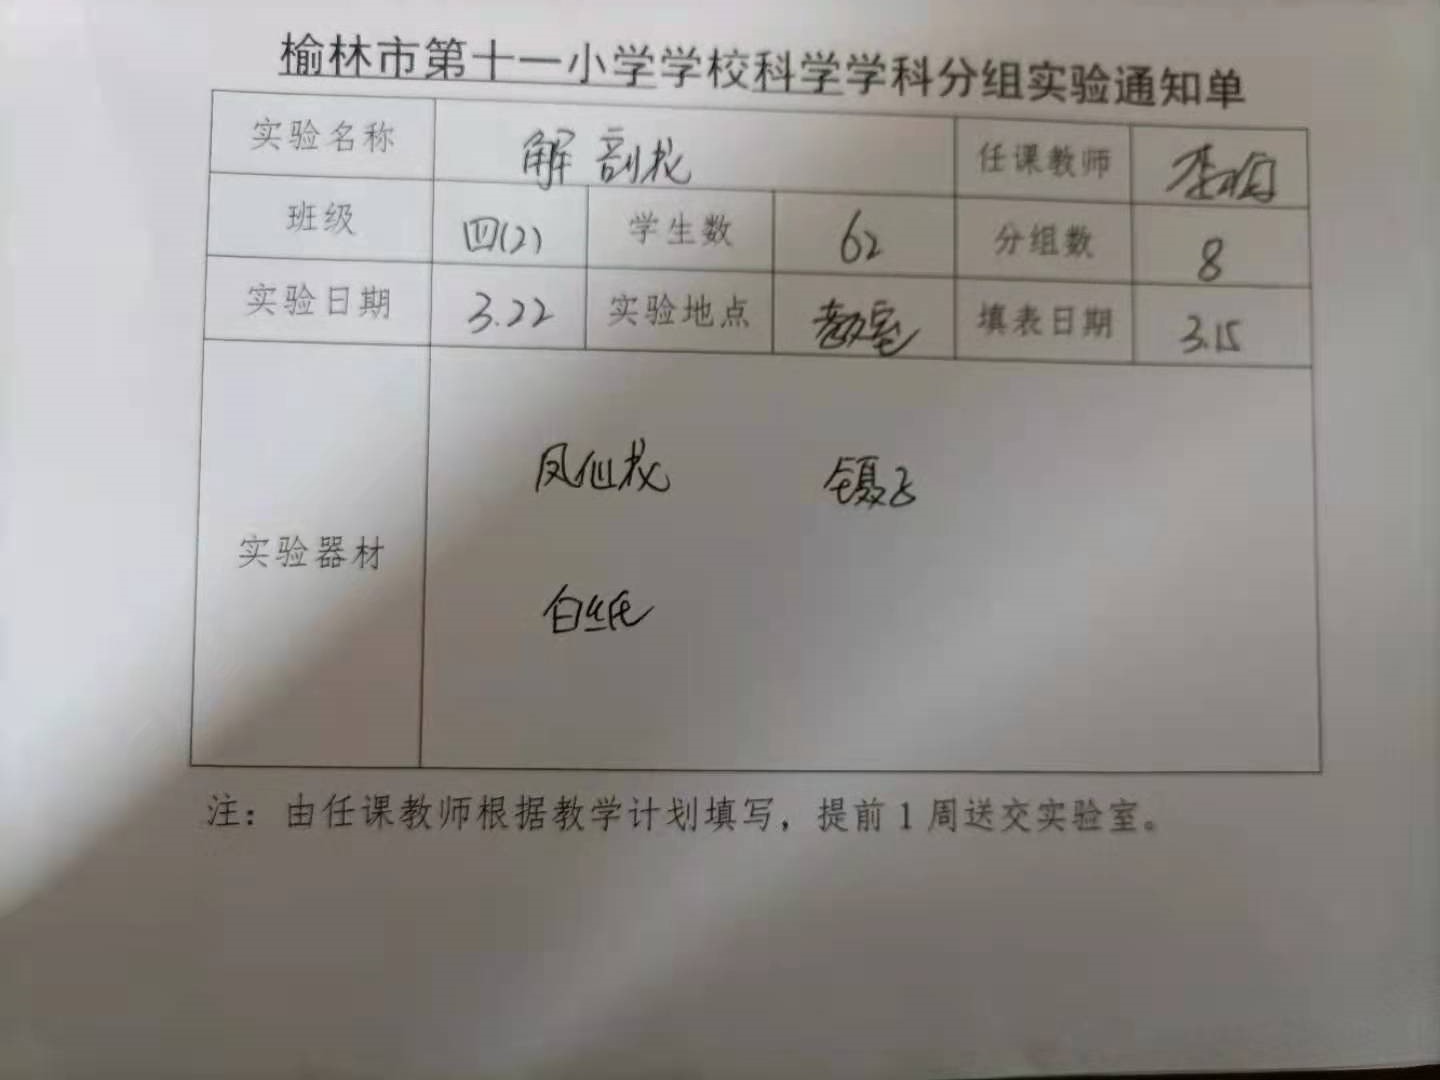 榆林市第十一小学学校科学学科分组实验通知单
实验名称 解剖花 任课教师 李
班级 四(2) 学生数 62 分组数 8
实验日期 3.22 实验地点 教室 填表日期 3.15
凤仙花 镊子
实验器材
白纸
注：由任课教师根据教学计划填写，提前1周送交实验室。